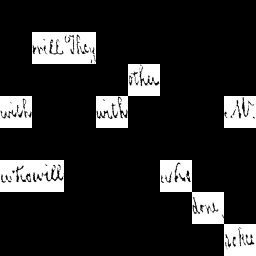 will They
other
with with W.
who will who
done,